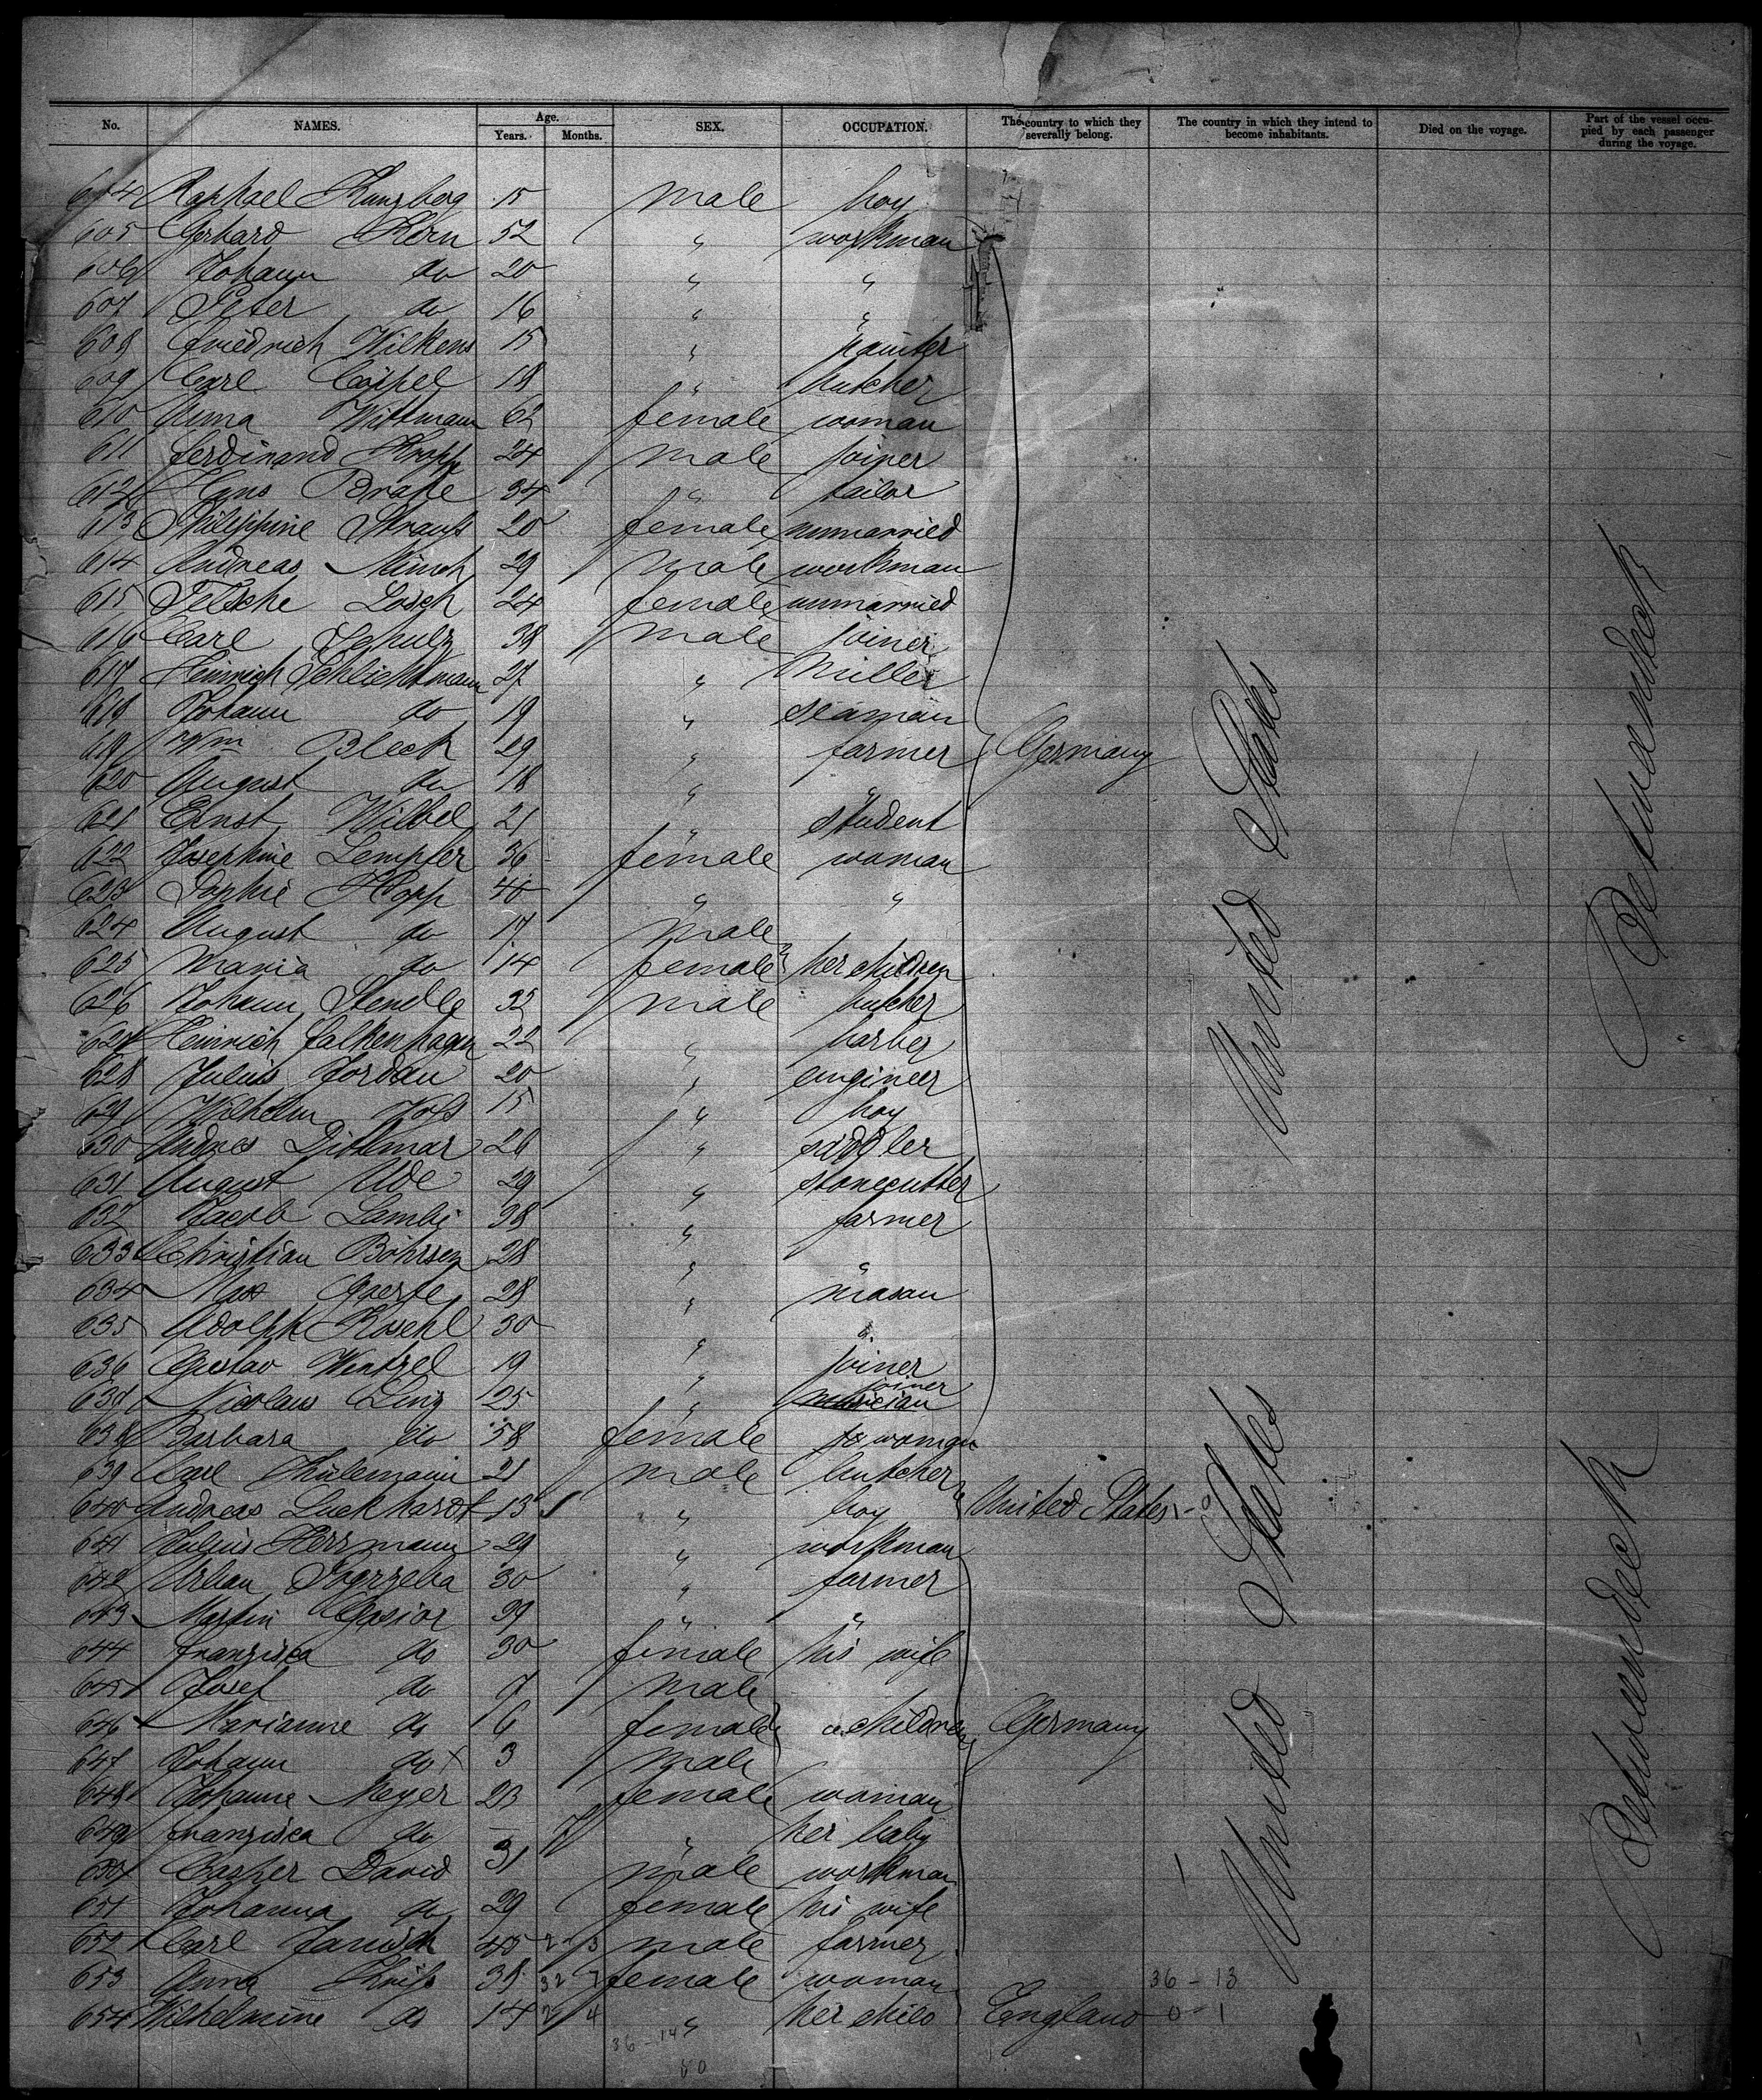 No. NAMES. Age. Years. Months. SEX. OCCUPATION. The country to which they severally belong. The country in which they intend to become inhabitants. Died on the voyage. Part of the vessel occupied by each passenger during the voyage.
604 Raphael 15 male boy
605 Gerhard Korn 52 " workman
606 Johann do 20 " "
607 Peter do 16 " "
608 Friedrich Wilkens 15 " painter
609 Carl 18 " butcher
610 Anna Wittmann 62 female woman
611 Ferdinand Kropp 24 male joiner
612 Hans Brake 34 " tailor
613 Philippine Strauss 20 female unmarried
614 Andreas Münch 29 male workman
615 Losch 24 female unmarried
616 Carl Schulz 38 male joiner
617 Heinrich Schlichtmann 27 " Miller
618 Johann do 19 " seaman
619 Wm Bleck 29 " farmer Germany
620 August do 18 " "
621 Ernst Wilbel 21 " student
622 Josephine Lempfer 36 female woman
623 Sophie Kopp 40 " "
624 August do 17 male
625 Maria do 14 female her children
626 Johann Stendle 32 male butcher
627 Heinrich Falkenhagen 22 " barber
628 Julius Jordan 20 " engineer
629 Wilhelm Voss 15 " boy
630 Andres Dittmar 26 " saddler
631 August Ude 29 " stonecutter
632 Jacob Lambi 38 " farmer
633 Christian Böhrsen 28 " "
634 Max Gaerte 28 " mason
635 Adolph Roschl 30 " "
636 Gustav Wentzel 19 " joiner
637 Nicolaus Linz 25 " musician joiner
638 Barbara do 58 female woman
639 Carl Thülemann 21 male butcher
640 Andreas Luckhardt 13 " boy United States
641 Julius Herrmann 29 " workman
642 Urban Pogrzeba 30 " farmer
643 Martin Gasior 39 " "
644 Franziska do 30 female his wife
645 Josef do 9 male
646 Marianne do 6 female children Germany
647 Johann do x 3 male
648 Johanne Meyer 23 female woman
649 Franziska do — " her baby
650 Casper David 31 male workman
651 Johanna do 29 female his wife
652 Carl Janisch 45 male farmer
653 Anna 38 female woman 36 - 13
654 Wilhelmine do 14 " her child England 0 - 1
36 - 14
United States
United States
Betweendeck
Betweendeck